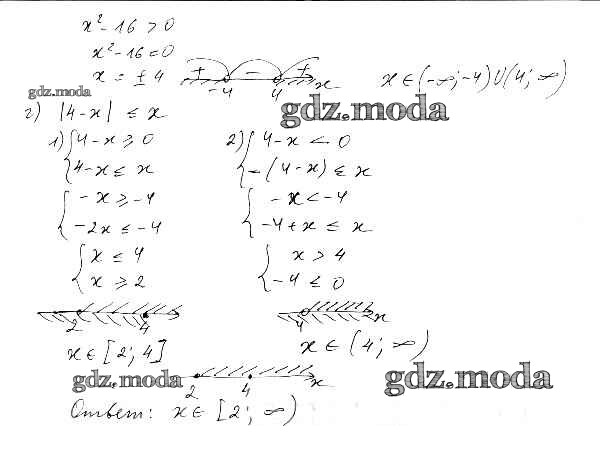 x² - 16 > 0
x² - 16 = 0
x = ± 4
+ - + -4 4 x
x ∈ (-∞; -4) U (4; ∞)
gdz.moda
gdz.moda
г) |4-x| ≤ x
1) { 4-x ≥ 0
4-x ≤ x
{ -x ≥ -4
-2x ≤ -4
{ x ≤ 4
x ≥ 2
2 4
x ∈ [2; 4]
2) { 4-x < 0
-(4-x) ≤ x
{ -x < -4
-4+x ≤ x
{ x > 4
-4 ≤ 0
4 x
x ∈ (4; ∞)
gdz.moda
2 4 x
gdz.moda
Ответ: x ∈ [2; ∞)